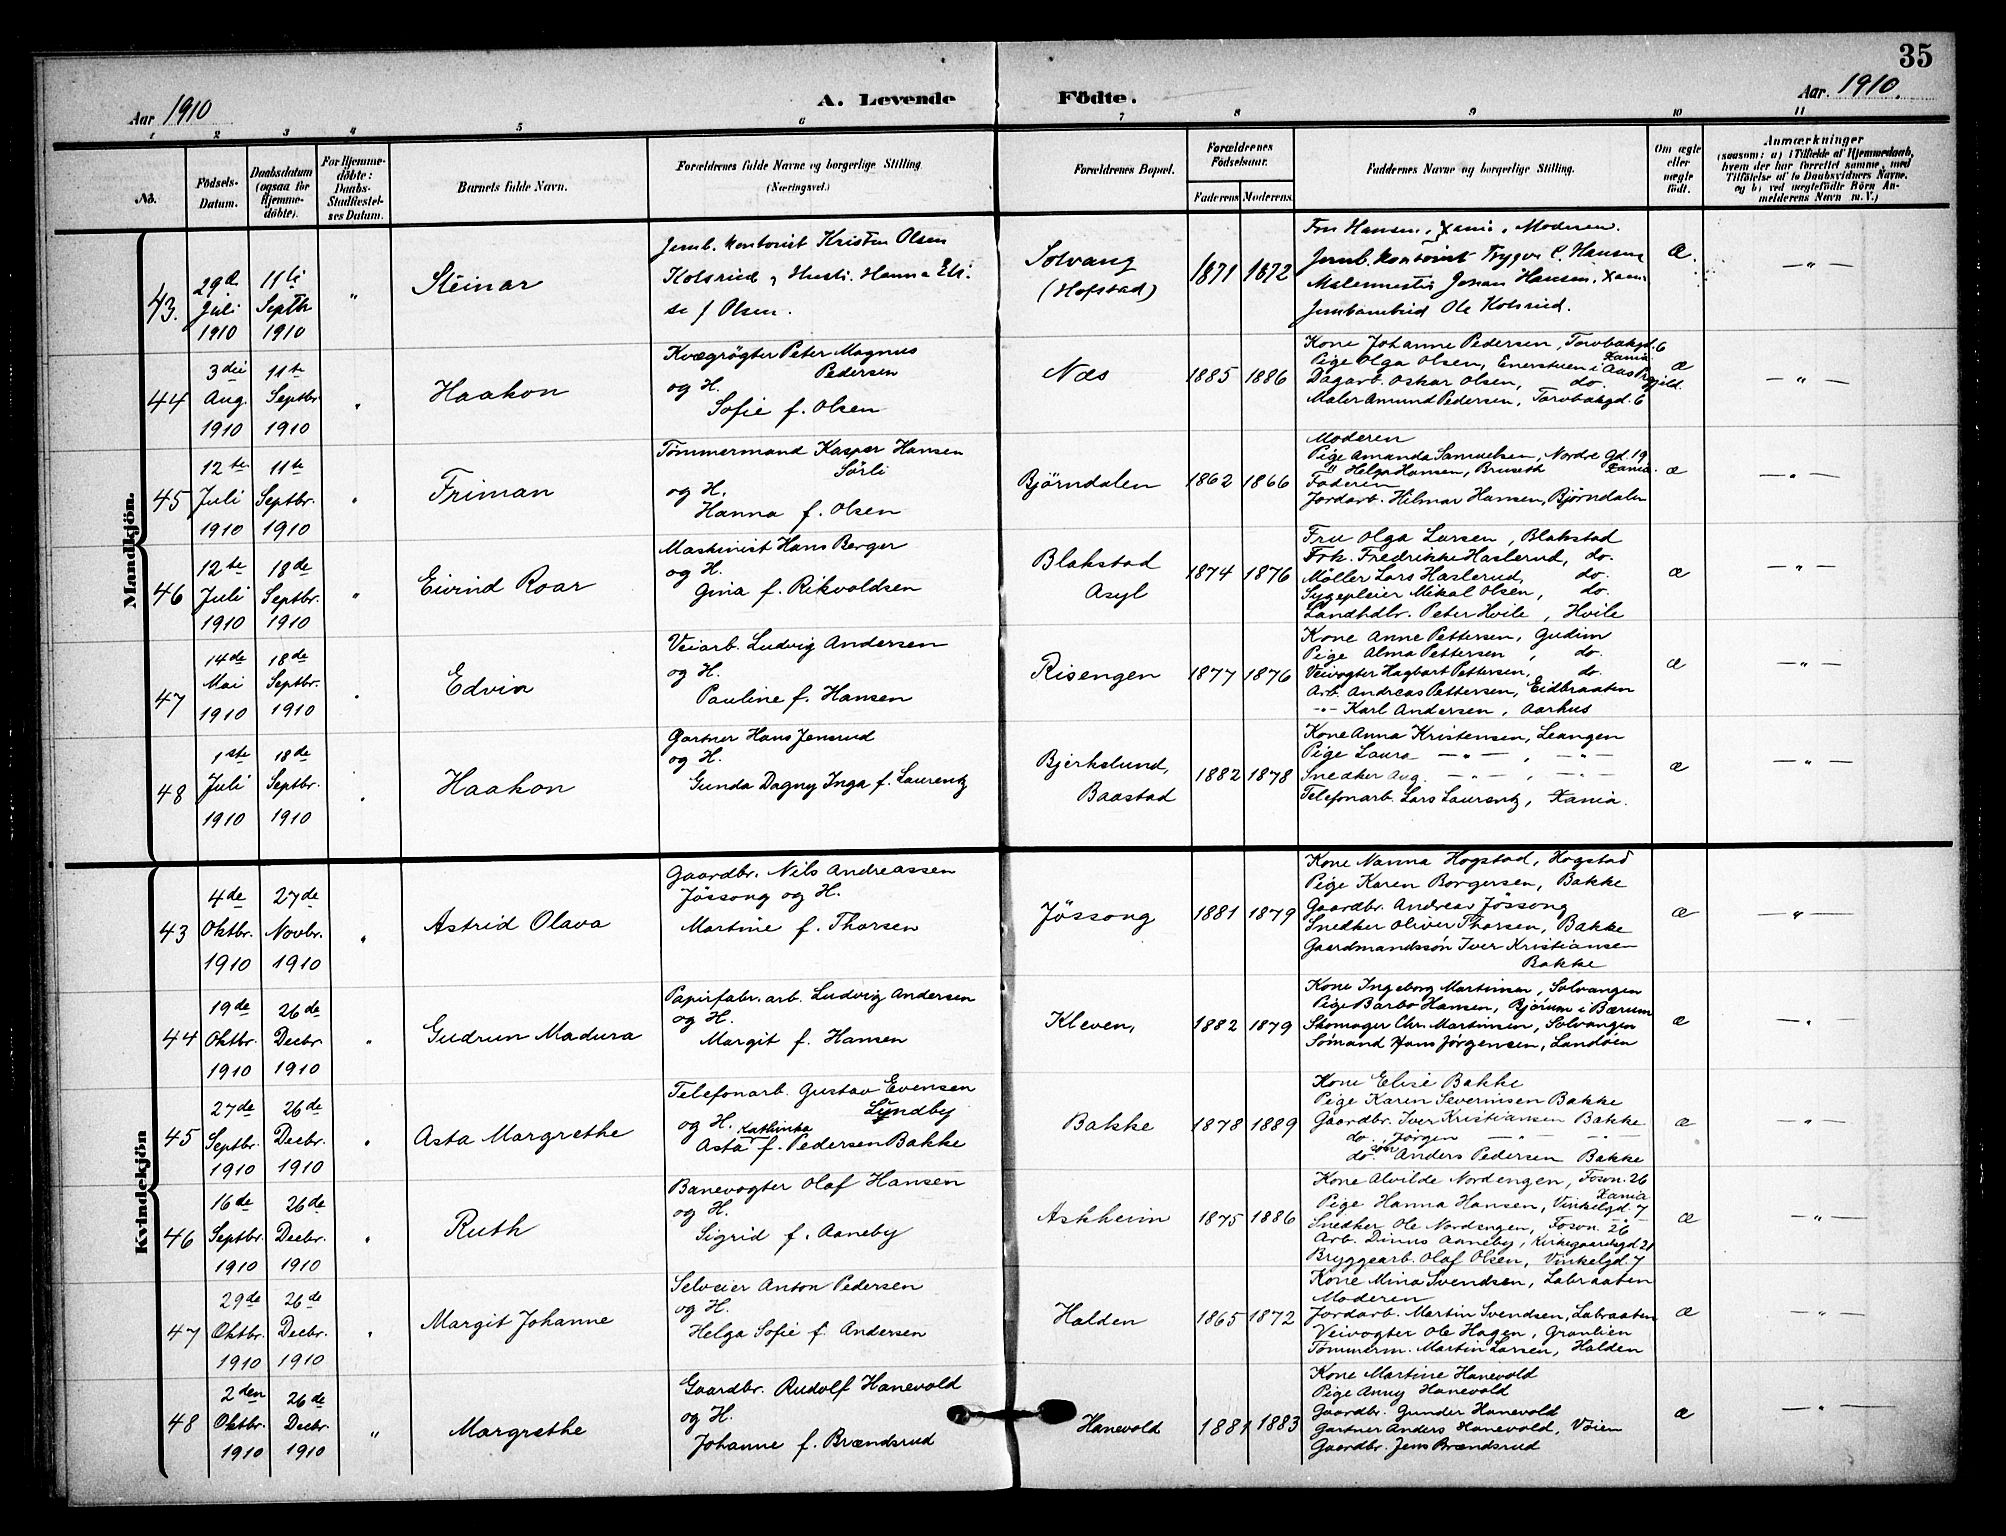 35
Aar 1910
A. Levende Födte.
Aar. 1910.
1 2 3 4 5 6 7 8 9 10 11
No.
Födsels-
Datum.
Daabsdatum
(ogsaa for
Hjemme-
döbte).
For Hjemme-
döbte:
Daabs-
Stadfæstel-
ses Datum.
Barnets fulde Navn.
Forældrenes fulde Navne og borgerlige Stilling.
(Næringsvei.)
Forældrenes Bopæl.
Forældrenes
Födselsaar.
Faderens. Moderens.
Faddernes Navne og borgerlige Stilling.
Om ægte
eller
uægte
födt.
Anmærkninger
(saasom: a) i Tilfælde af Hjemmedaab,
hvem der har forrettet samme, med
Tilföielse af to Daabsvidners Navne,
og b) ved uægtefödte Börn An-
melderens Navn m. V.)
Mandkjön.
43.
29de
Juli
1910
11te
Septbr
1910
"
Steinar
Jernb. kontorist Kristen Olsen
Kolsrud, Hustr. Hanna Eli-
se f Olsen.
Solvang
(Hofstad)
1871 1872
Fru Hansen, Xania, Moderen.
Jernb. kontorist Trygve C. Hansen
Malermester Johan Hansen, Xania
Jernbanebud Ole Kolsrud.
Æ.
— " —
44
3die
Aug.
1910
11te
Septbr
1910
"
Haakon
Kvægrøgter Peter Magnus
Pedersen
og H.
Sofie f. Olsen
Næs
1885 1886
Kone Johanne Pedersen, Torvbakgd. 6
Xania
Pige Olga Olsen, Enerstuen i Aas Prgjeld.
Dagarb. Oskar Olsen, do.
Maler Amund Pedersen, Torvbakgd. 6
Æ
— " —
45
12te
Juli
1910
11te
Septbr.
1910
"
Friman
Tømmermand Kasper Hansen
Sørli
og H.
Hanna f. Olsen
Bjørndalen
1862 1866
Moderen
Pige Amanda Samuelsen, Nordre Gd. 19
" Helga Hansen, Bruseth Xania.
Faderen
Jordarb. Hilmar Hansen, Bjørndalen
Æ
— " —
46
12te
Juli
1910
18de
Septbr.
1910
"
Eivind Roar
Maskinist Hans Berger
og H.
Gina f. Rikvoldsen
Blakstad
Asyl
1874 1876
Fru Olga Larsen, Blakstad
Frk. Fredrikke Haslerud, do.
Møller Lars Haslerud, do.
Sygepleier Mikal Olsen, do.
Landhdbr. Peter Hvile, Hvile
Æ
— " —
47
14de
Mai
1910
18de
Septbr.
1910
"
Edvin
Veiarb. Ludvig Andersen
og H.
Pauline f. Hansen
Risengen
1877 1876
Kone Anne Pettersen, Gudim
Pige Alma Pettersen, do.
Veivogter Hagbart Pettersen, do.
Arb. Andreas Pettersen, Eidbraaten
-"- Karl Andersen, Aarhus
Æ
— " —
48
1ste
Juli
1910
18de
Septbr.
1910
"
Haakon
Gartner Hans Jensrud
og H.
Gunda Dagny Inga f. Laurentz
Bjerkelund,
Baastad
1882 1878
Kone Anna Kristensen, Leangen
Pige Laura — " —, — " —
Snedker Aug. — " —, — " —
Telefonarb. Lars Laurentz, Xania.
Æ
— " —
Kvindekjön
43
4de
Oktbr.
1910
27de
Novbr.
1910
"
Astrid Olava
Gaardbr. Nils Andreassen
Jøssong og H.
Martine f. Thorsen
Jøssong
1881 1879
Kone Nanna Hogstad, Hogstad
Pige Karen Borgersen, Bakke
Gaardbr. Andreas Jøssong
Snedker Oliver Thorsen, Bakke
Gaardmandssøn Iver Kristiansen
Bakke
Æ
— " —
44
19de
Oktbr.
1910
26de
Decbr.
1910
"
Gudrun Madura
Papirfabr. arb. Ludvig Andersen
og H.
Margit f. Hansen
Kleven,
1882 1879
Kone Ingeborg Martinsen, Solvangen
Pige Barbo Hansen, Bjørum i Bærum
Skomager Chr. Martinsen, Solvangen
Sømand Hans Jørgensen, Landøen
Æ
— " —
45
27de
Septbr.
1910
26de
Decbr.
1910
"
Asta Margrethe
Telefonarb. Gustav Evensen
Lundby
og H. Kathinka
Asta f. Pedersen Bakke
Bakke
1878 1889
Kone Elise Bakke
Pige Karen Severinsen Bakke
Gaardbr. Iver Kristiansen Bakke
do. Jørgen — " — - " -
do. søn Anders Pedersen Bakke
Æ
— " —
46
16de
Septbr.
1910
26de
Decbr.
1910
"
Ruth
Banevogter Olaf Hansen
og H.
Sigrid f. Aaneby
Askheim
1875 1886
Kone Alvilde Nordengen, Foson. 26
Xania
Pige Hanna Hansen, Vinkelgd. 7
Snedker Ole Nordengen, Foson. 26
Arb. Dinus Aaneby, Kirkegaardsgd 21
Bryggearb. Olaf Olsen, Vinkelgd. 7
Æ
— " —
47
29de
Oktbr.
1910
26de
Decbr.
1910
"
Margit Johanne
Selveier Anton Pedersen
og H.
Helga Sofie f. Andersen
Halden
1865 1872
Kone Mina Svendsen, Labraaten
Moderen
Jordarb. Martin Svendsen, Labraaten
Veivogter Ole Hagen, Granlien
Tømmerm. Martin Larsen, Halden
Æ
— " —
48
2den
Oktbr.
1910
26de
Decbr.
1910
"
Margrethe
Gaardbr. Rudolf Hanevold
og H.
Johanne f. Brændsrud
Hanevold
1881 1883
Kone Martine Hanevold
Pige Anny Hanevold
Gaardbr. Gunder Hanevold
Gartner Anders Hanevold, Vøien
Gaardbr. Jens Brændsrud
Æ
— " —